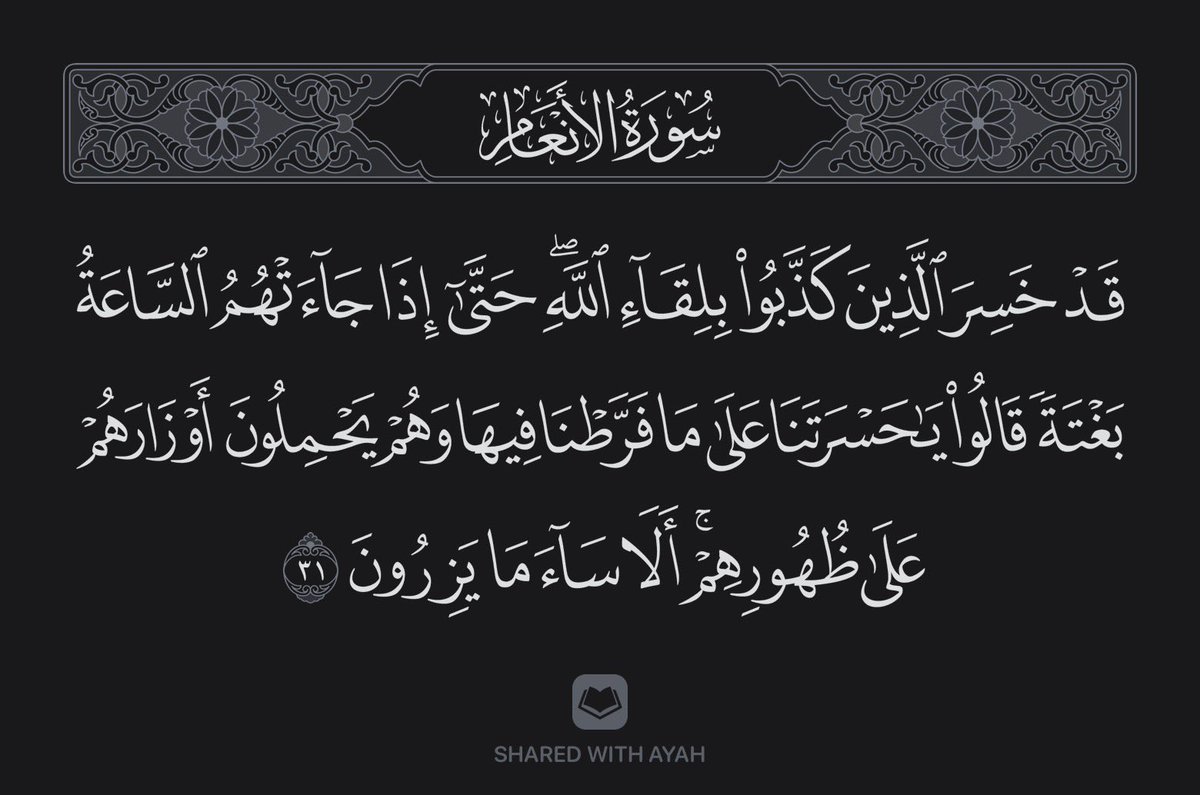 سُورَةُ الأَنْعَامِ
قَدْ خَسِرَ ٱلَّذِينَ كَذَّبُوا۟ بِلِقَآءِ ٱللَّهِ ۖ حَتَّىٰٓ إِذَا جَآءَتْهُمُ ٱلسَّاعَةُ
بَغْتَةً قَالُوا۟ يَـٰحَسْرَتَنَا عَلَىٰ مَا فَرَّطْنَا فِيهَا وَهُمْ يَحْمِلُونَ أَوْزَارَهُمْ
عَلَىٰ ظُهُورِهِمْ ۚ أَلَا سَآءَ مَا يَزِرُونَ ٣١
SHARED WITH AYAH